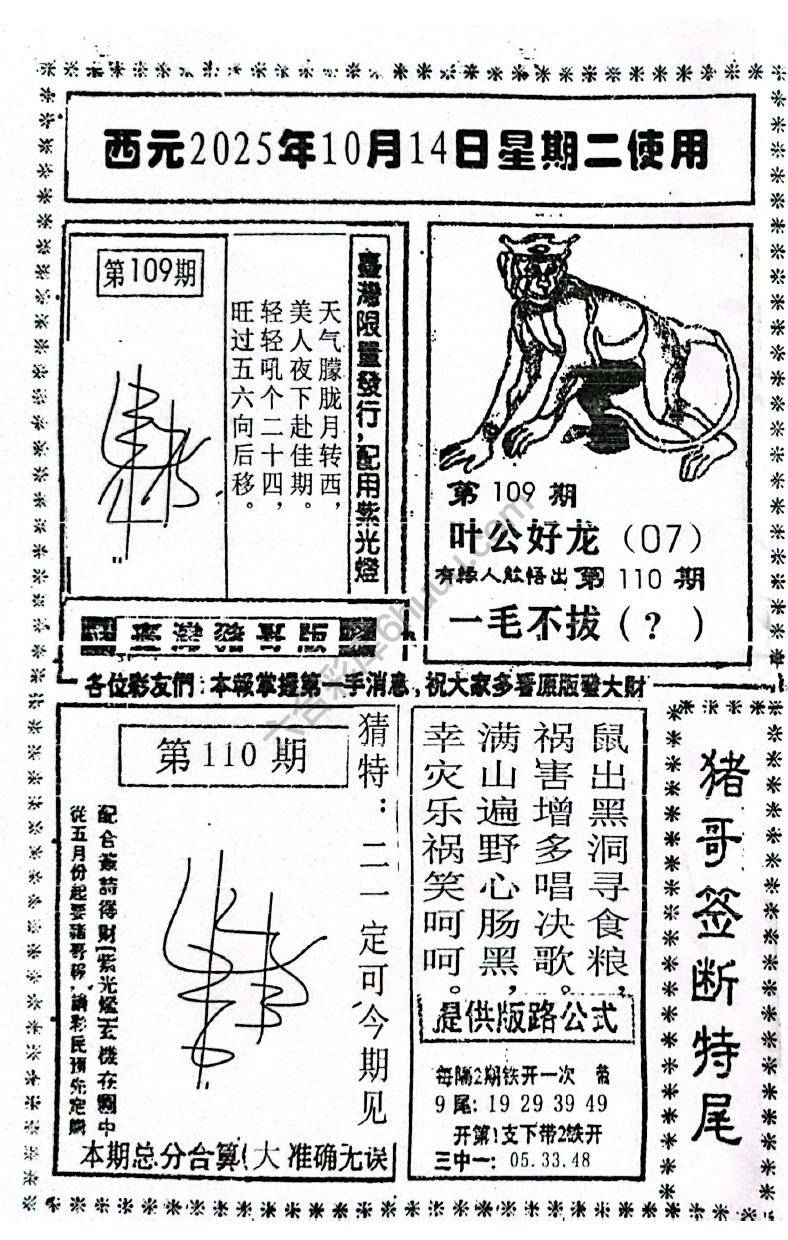 西元2025年10月14日星期二使用
第109期
臺灣限量發行，配用紫光燈
天气朦胧月转西，
美人夜下赴佳期。
轻轻吼个二十四，
旺过五六向后移。
第 109 期
叶公好龙（07）
有緣人能悟出 第 110 期
一毛不拔（?）
臺灣豬哥版
各位彩友們：本報掌握第一手消息，祝大家多看原版發大財
第110期
猜特：二一定可今期见
配合簽詩得财[紫光燈]玄機在圖中
從五月份起要諸哥報，請彩民預先定購
本期总分合算(大 准确无误
鼠出黑洞寻食粮，
祸害增多唱决歌。
满山遍野心肠黑，
幸灾乐祸笑呵呵。
提供版路公式
每隔2期铁开一次 带
9尾: 19 29 39 49
开第1支下带2铁开
三中一: 05.33.48
猪哥签断特尾